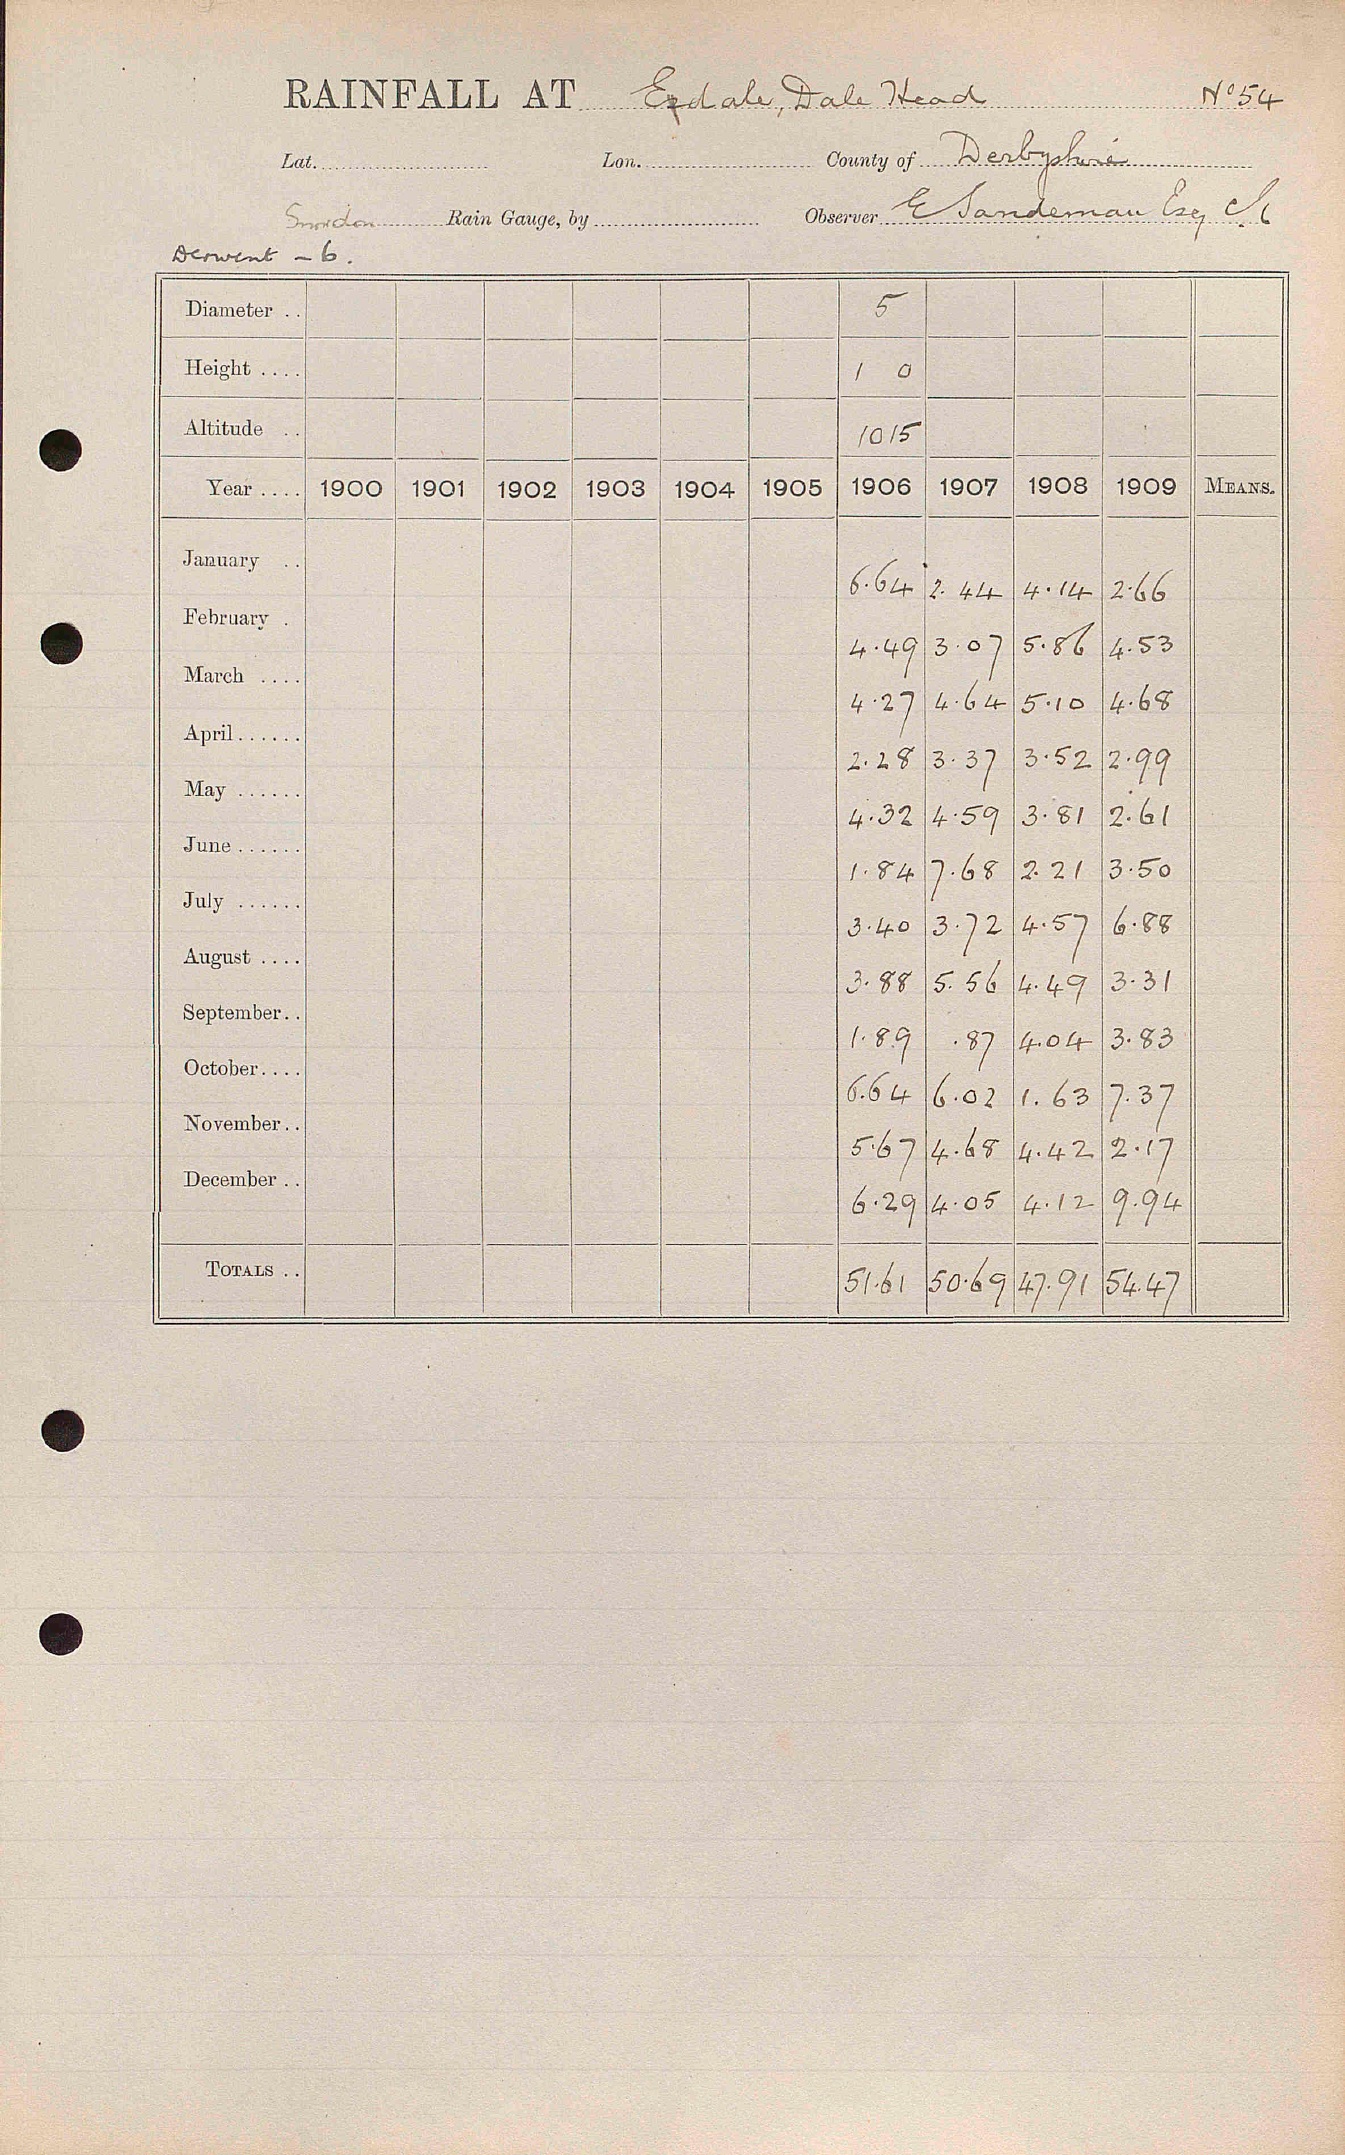 RAINFALL AT Edale, Dale Head No 54
Lat. Lon. County of Derbyshire
Snowdon Rain Gauge, by Observer E Sandeman Esq
Derwent - 6.
Diameter .. 5
Height .... 1 0
Altitude .. 1015
Year .... 1900 1901 1902 1903 1904 1905 1906 1907 1908 1909 MEANS.
January .. 6.64 2.44 4.14 2.66
February . 4.49 3.07 5.86 4.53
March .... 4.27 4.64 5.10 4.68
April...... 2.28 3.37 3.52 2.99
May ...... 4.32 4.59 3.81 2.61
June...... 1.84 7.68 2.21 3.50
July ...... 3.40 3.72 4.57 6.88
August .... 3.88 5.56 4.49 3.31
September.. 1.89 .87 4.04 3.83
October.... 6.64 6.02 1.63 7.37
November.. 5.67 4.68 4.42 2.17
December .. 6.29 4.05 4.12 9.94
TOTALS .. 51.61 50.69 47.91 54.47